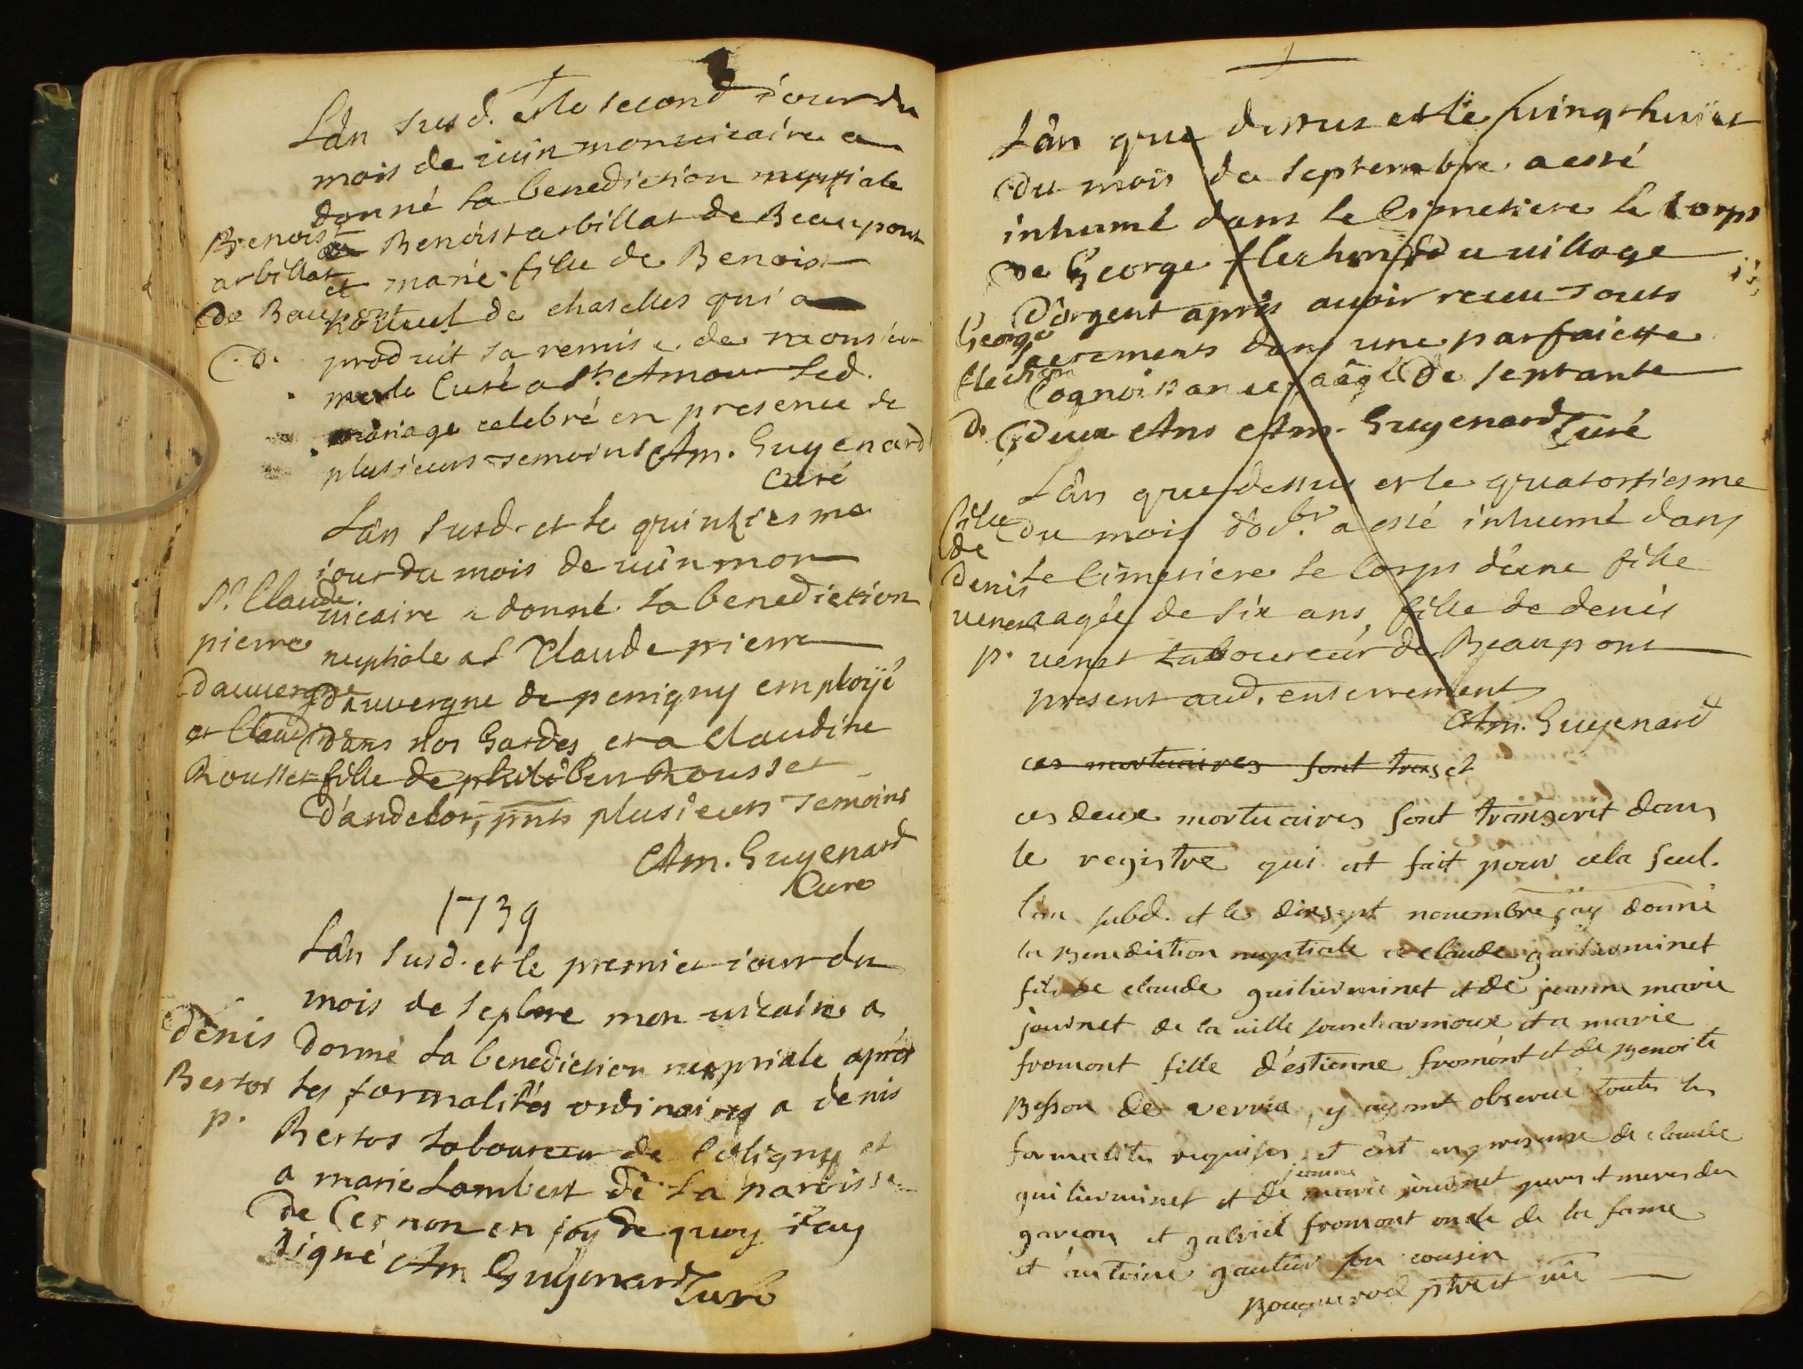 Lân susd. et le second iour du
mois de iuin mon uicaire a
donné la benediction nuptiale
a Benoist arbillat de Beaupont
et marie fille de Benoist
de chaselles qui a
produit sa remise de monsieur
Curé a St. Amour Led.
mariage celebré en presence de
plusieurs temoins Am. Guyenard
Curé
Benoist
arbillat
De Beaupont
Lân susd. et le quinziesme
iour du mois de iuin mon
uicaire a donné la benediction
nuptiale a Sr Claude pierre
dauvergne de perrigny employé
dans nos Gardes et a claudine
fille de philiber Rousset
d'andelot, pnts plusieurs temoins
Am. Guyenard
Curé
Sr. Claude
pierre
dauvergne
et Claud
Rousset
1739
Lân susd. et le premier iour du
mois de sepbre mon uicaire a
donné la benediction nuptiale après
les formalités ordinaires a denis
Bertos laboureur de Coligny et
a marie Lambert de la paroisse
de Cernon en foy de quoy i'ay
signé Am. Guyenard Curé
denis
Bertos
p.
Lân que dessus et le uingt huict
du mois de septembre a esté
inhumé dans le Cimetiere le Corps
de George flechon du uillage
d'orgent après auoir receu touts
sacrements dans une parfaicte
Cognoissance aâgé de septante
deux Ans Am. Guyenard Curé
George
flechon
Lân que dessus et le quatorziesme
du mois d'8br. a esté inhumé dans
le Cimetiere le Corps d'une fille
aagée de six ans, fille de denis
uenet Laboureur de Beaupont
present aud. enterrement
Am. Guyenard
fille
de
denis
uenet
p.
ces mortuaires sont trans et
ces deux mortuaires sont transcrit dans
le registre qui est fait pour cela seul.
l'an subd. et le dixsept nouembre j'ay donné
la Benediction nuptiale a claude guilierminet
fils de claude guilierminet et de jeanne marie
jouvnet de la uille et a marie
fromont fille d'estienne fromont et de Benoite
Besson de verria, y ayant observé toutes les
formalités requises et ont en presence de claude
guilierminet et de jeanne marie jouvnet peres et meres du
garcon et gabriel fromont oncle de la fame
et antoine gautier son cousin
ptre et